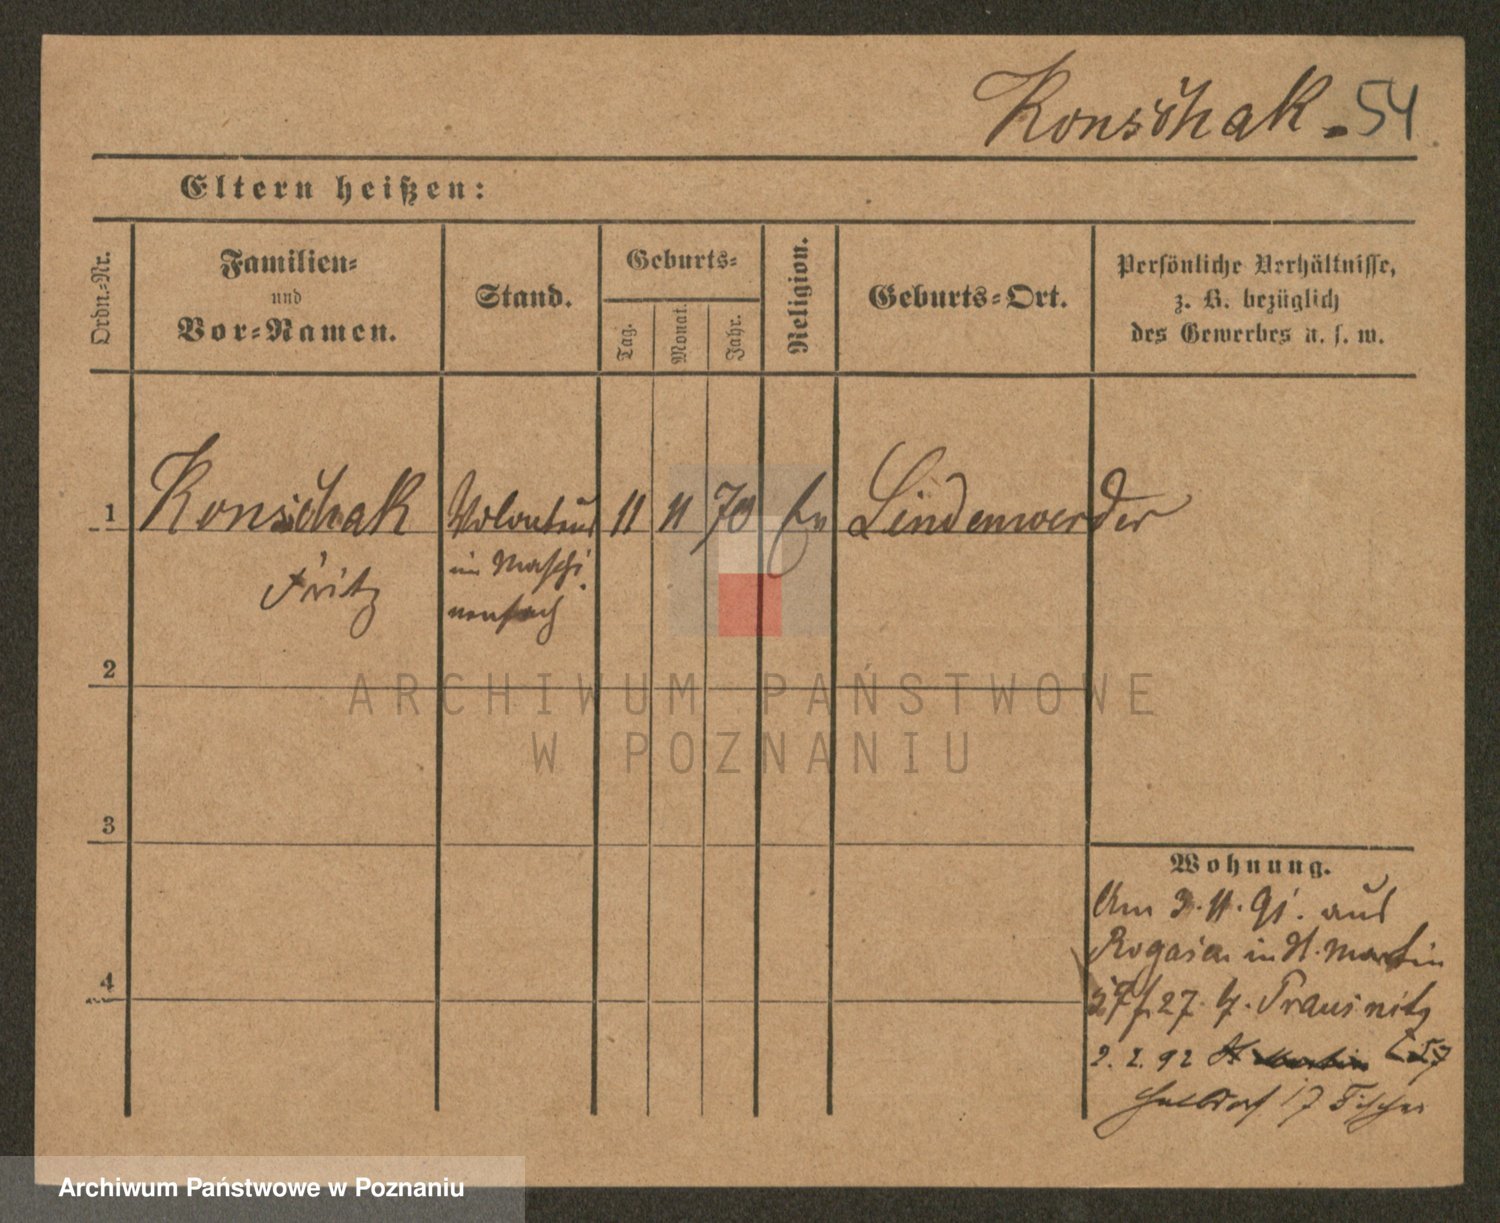 Konschak - 54
Eltern heißen:
Ordn.-Nr.
Familien-
und
Vor-Namen.
Stand.
Geburts-
Tag.
Monat.
Jahr.
Religion.
Geburts-Ort.
Persönliche Verhältnisse,
z. B. bezüglich
des Gewerbes u. s. w.
1 Konschak Volonteur 11 11 70 Ev Lindenwerder
Fritz im Maschi
nenfach
2
3
4
Wohnung.
Am 3. 11. 91. aus
Rogasen in St. Martin
27 b. Prausnitz
2. 2. 92 St. Martin
Halbdorf 17 Fischer
ARCHIWUM PAŃSTWOWE
W POZNANIU
Archiwum Państwowe w Poznaniu